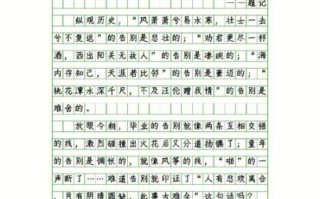 ——题记
纵观历史，“风萧萧兮易水寒，壮士一去
兮不复返”的告别是悲壮的；“劝君更尽一杯
酒，西出阳关无故人”的告别是凄婉的；“海
内存知己，天涯若比邻”的告别是豪迈的；“
桃花潭水深千尺，不及汪伦赠我情”的告别是
难舍的。
放眼今朝，毕业的告别就像两条互相交错
的线，激烈碰撞出火花后又分道扬镳了；童年
的告别是惆怅的，就像风筝的线，“啪”的一
声断了……难道告别就印证了“人有悲欢离合，
月有阴晴圆缺，此事古难全”这句话吗？